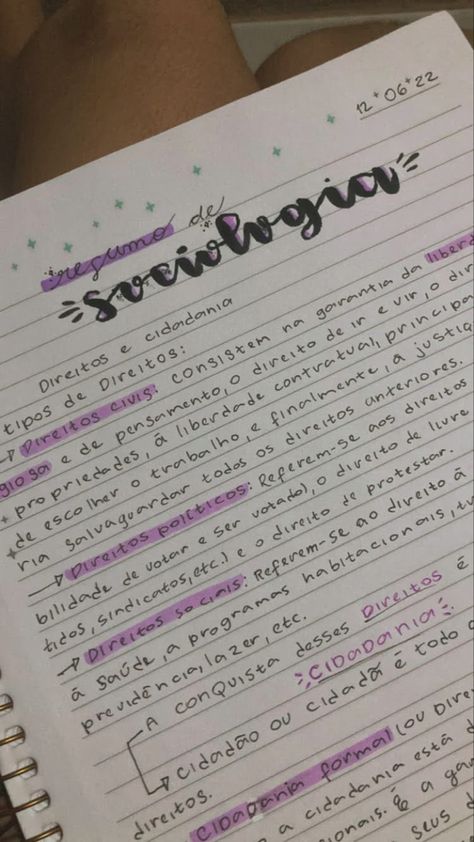 12 + 06 + 22
resumo de
sociologia
Direitos e cidadania
tipos de Direitos:
→ Direitos civis: consistem na garantia da liberd
giosa e de pensamento, o direito de ir e vir, o dir
+ propriedades, à liberdade contratual, principa
de escolher o trabalho, e finalmente, a justiça
+ ria salvaguardar todos os direitos anteriores.
→ Direitos políticos: Referem-se aos direitos
bilidade de votar e ser votado), o direito de livre
tidos, sindicatos, etc.) e o direito de protestar.
→ Direitos sociais: Referem-se ao direito à
à saúde, a programas habitacionais,
previdência, lazer, etc.
A conquista desses Direitos é
CIDADANIA:
→ cidadão ou cidadã é todo
direitos.
CIDADANIA formal (ou Direi
a cidadania está
ionais. É a ga
seus